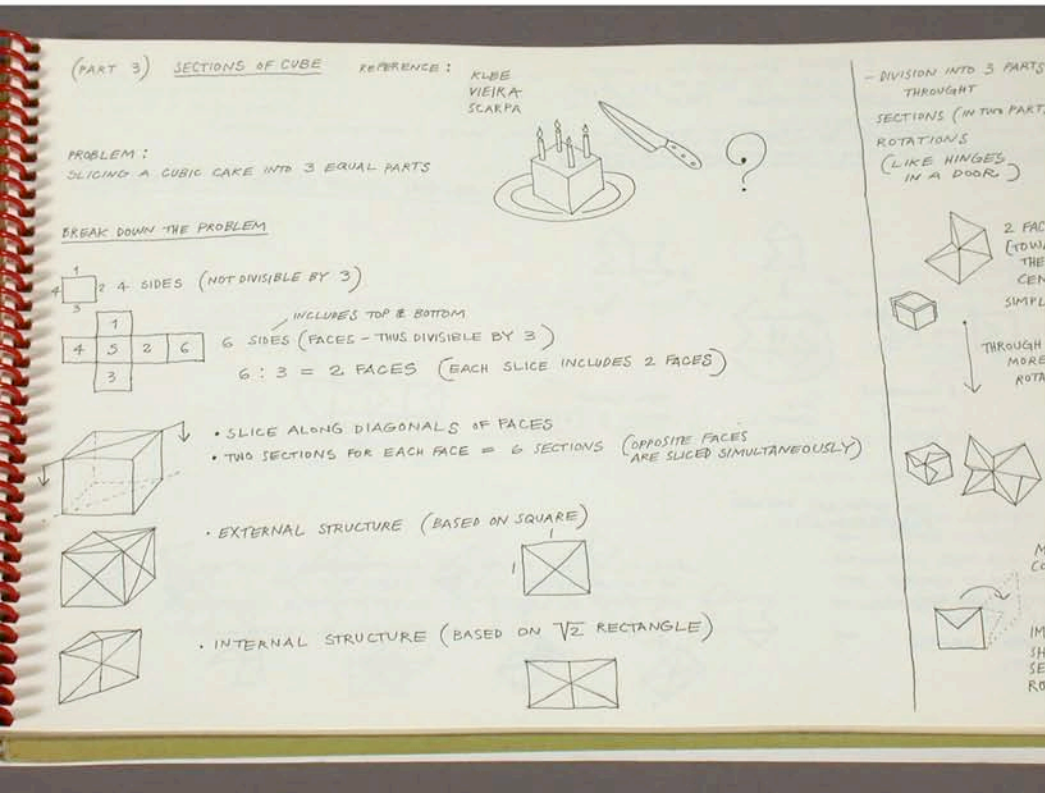 (PART 3) SECTIONS OF CUBE REFERENCE:
KLEE
VIEIRA
SCARPA
PROBLEM:
SLICING A CUBIC CAKE INTO 3 EQUAL PARTS
?
BREAK DOWN THE PROBLEM
1
4 2 4 SIDES (NOT DIVISIBLE BY 3)
3
INCLUDES TOP & BOTTOM
1
4 5 2 6 6 SIDES (FACES - THUS DIVISIBLE BY 3)
3
6 : 3 = 2 FACES (EACH SLICE INCLUDES 2 FACES)
• SLICE ALONG DIAGONALS OF FACES
• TWO SECTIONS FOR EACH FACE = 6 SECTIONS (OPPOSITE FACES
ARE SLICED SIMULTANEOUSLY)
• EXTERNAL STRUCTURE (BASED ON SQUARE)
1
1
• INTERNAL STRUCTURE (BASED ON √2 RECTANGLE)
- DIVISION INTO 3 PARTS
THROUGHT
SECTIONS (IN TWO PART
ROTATIONS
(LIKE HINGES
IN A DOOR)
2 FAC
(TOWA
THE
CEN
SIMPL
THROUGH
MORE
ROTA
M
CO
IM
SH
SE
RO